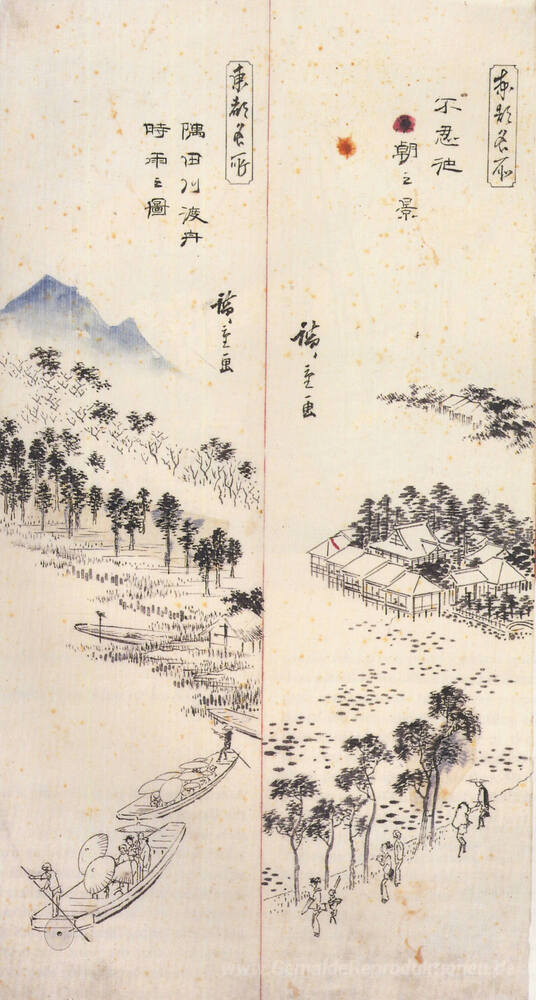 東都名所
不忍池
朝之景
廣重画
東都名所
隅田川渡舟
時雨之圖
廣重画
www.Gemaelde-Reproduktionen.de